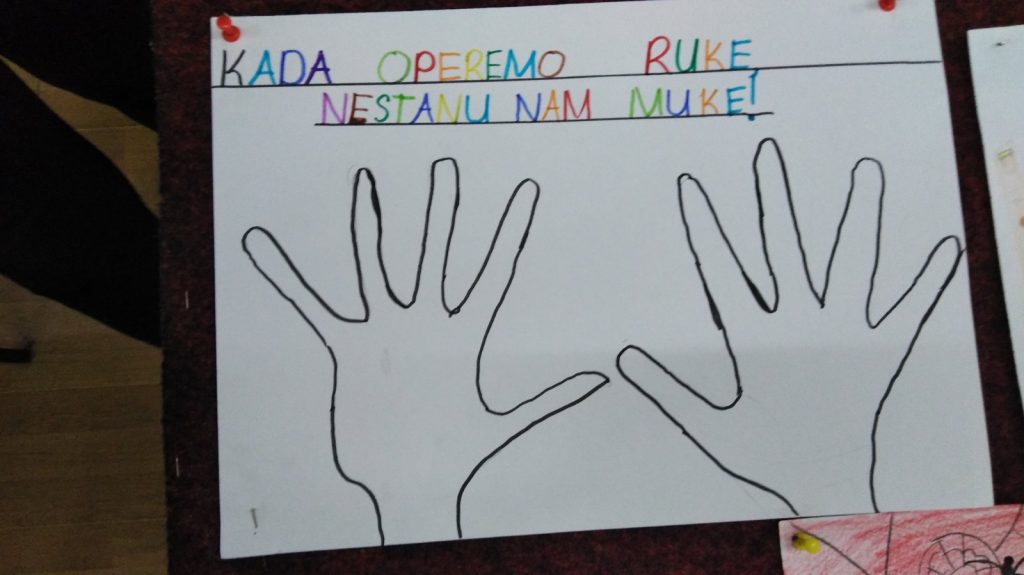 KADA OPEREMO RUKE
NESTANU NAM MUKE!